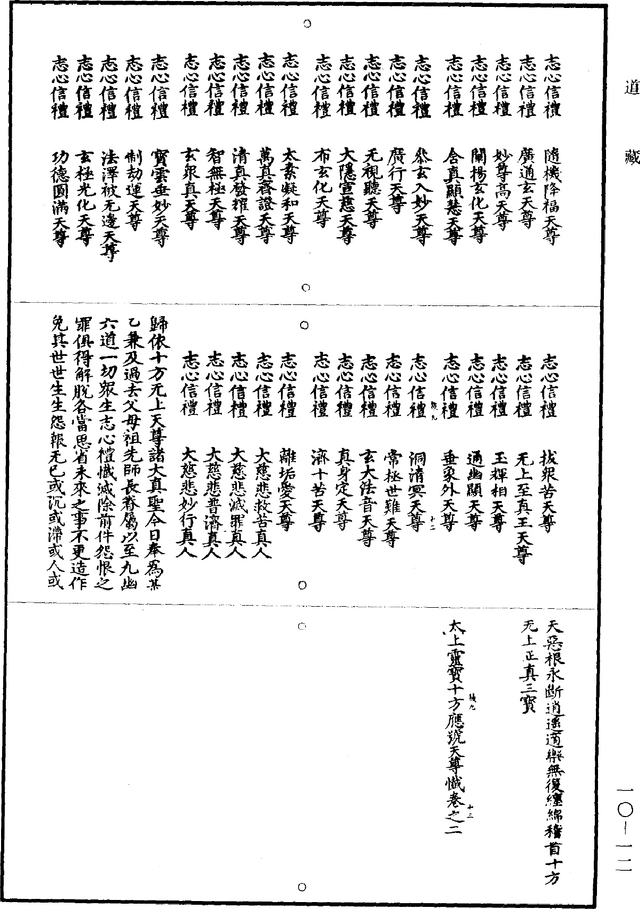 道藏
志心信禮　隨機降福天尊
志心信禮　廣道玄天尊
志心信禮　妙尊高天尊
志心信禮　開揚玄化天尊
志心信禮　含真顯慧天尊
志心信禮　恭玄入妙天尊
志心信禮　廣行天尊
志心信禮　无視聽天尊
志心信禮　大隱宣慈天尊
志心信禮　布玄化天尊
志心信禮　太素凝和天尊
志心信禮　萬真齊證天尊
志心信禮　清真發擢天尊
志心信禮　智無極天尊
志心信禮　玄眾真天尊
志心信禮　寶雲垂妙天尊
志心信禮　制劫運天尊
志心信禮　法澤被无邊天尊
志心信禮　玄極光化天尊
志心信禮　功德圓滿天尊
志心信禮　拔眾苦天尊
志心信禮　无上至真王天尊
志心信禮　玉輝相天尊
志心信禮　通幽顯天尊
志心信禮　垂象外天尊
志心信禮　洞清冥天尊
志心信禮　常極世難天尊
志心信禮　玄大法音天尊
志心信禮　真身定天尊
志心信禮　濟十苦天尊
志心信禮　離垢愛天尊
志心信禮　大慈悲救苦真人
志心信禮　大慈悲滅罪真人
志心信禮　大慈悲普濟真人
志心信禮　大慈悲妙行真人
歸依十方无上天尊諸大真聖今日奉為某
乙兼及過去父母祖先師長眷屬以至九幽
六道一切眾生志心禮懺滅除前件怨恨之
罪俱得解脫各當思省未來之事不更造作
免其世世生生怨報无已或沉或滯或人或
天惡根永斷逍遙適樂無復纏綿稽首十方
无上正真三寶
太上靈寶十方應號天尊懺卷之二
一〇—一二